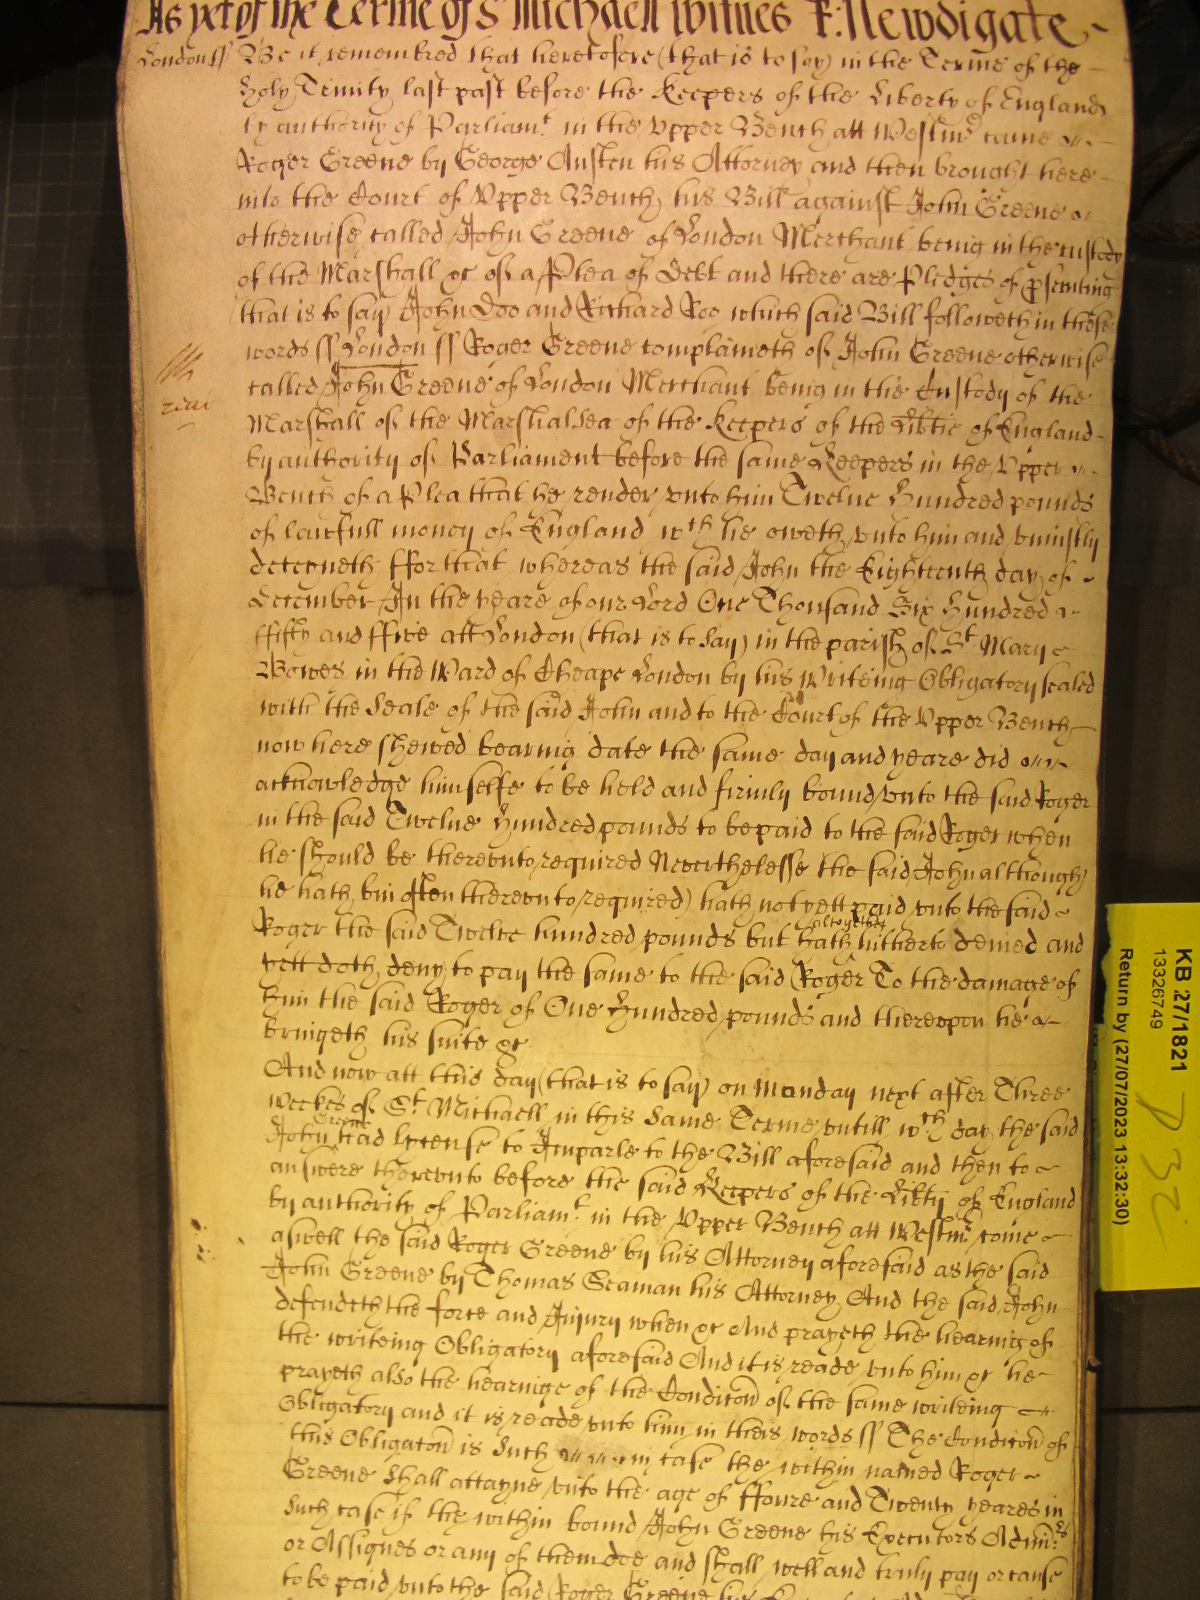 As yet of the Terme of St Michaell witnes R: Newdigate
London ss Be it remembred that heretofore (that is to say) in the Terme of the
Holy Trinity last past before the Keepers of the Liberty of England
by authority of Parliamt. in the Upper Bench att Westmr came
Roger Greene by George Austen his Attorney and then brought here
into the Court of Upper Bench his Bill against John Greene
otherwise called John Greene of London Merchant being in the custody
of the Marshall &c of a Plea of Debt and there are Pledges of psenting
(that is to say) John Doo and Richard Roo which said Bill followeth in these
words ss London ss Roger Greene complaineth of John Greene otherwise
called John Greene of London Merchant being in the Custody of the
Marshall of the Marshalsea of the Keepers of the Libtie of England
by authority of Parliament before the same Keepers in the Upper
Bench of a Plea that he render unto him Twelue Hundred pounds
of lawfull money of England wth he oweth unto him and uniustly
deteyneth ffor that whereas the said John the Eighteenth day of
December In the yeare of our Lord One Thousand Six Hundred
ffifty and ffive att London (that is to say) in the parish of St. Mary
Bowes in the Ward of Cheape London by his Writeing Obligatory sealed
with the Seale of the said John and to the Court of the Upper Bench
now here shewed bearing date the same day and yeare did
acknowledge himselfe to be held and firmly bound unto the said Roger
in the said Twelue Hundred pounds to be paid to the said Roger when
he should be thereunto required Neverthelesse the said John although
he hath bin often thereunto required) hath not yett paid unto the said
Roger the said Twelve hundred pounds but hath altogether hitherto denied and
yett doth deny to pay the same to the said Roger To the damage of
him the said Roger of One Hundred pounds and thereupon he
bringeth his suite &c
And now att this day (that is to say) on Monday next after Three
weekes of St. Michaell in this same Terme untill wch day the said
John Greene had lycense to Imparle to the Bill aforesaid and then to
answere thereunto before the said Keepers of the Libty of England
by authority of Parliamt. in the Upper Bench att Westmr come
aswell the said Roger Greene by his Attorney aforesaid as the said
John Greene by Thomas Seaman his Attorney And the said John
defendeth the force and Injury when &c And prayeth the hearing of
the writeing Obligatory aforesaid And it is reade unto him &c he
prayeth also the hearinge of the Conditon of the same writeing
Obligatory and it is reade unto him in theis words ss The Conditon of
this Obligaton is Such in case the within named Roger
Greene shall attayne unto the age of ffoure and Twenty yeares in
Such case if the within bound John Greene his Executors Admi:rs
or Assignes or any of them doe and shall well and truly pay or cause
to be paid unto the said Roger Greene his
KB 27/1821
13326749
Return by (27/07/2023 13:32:30)